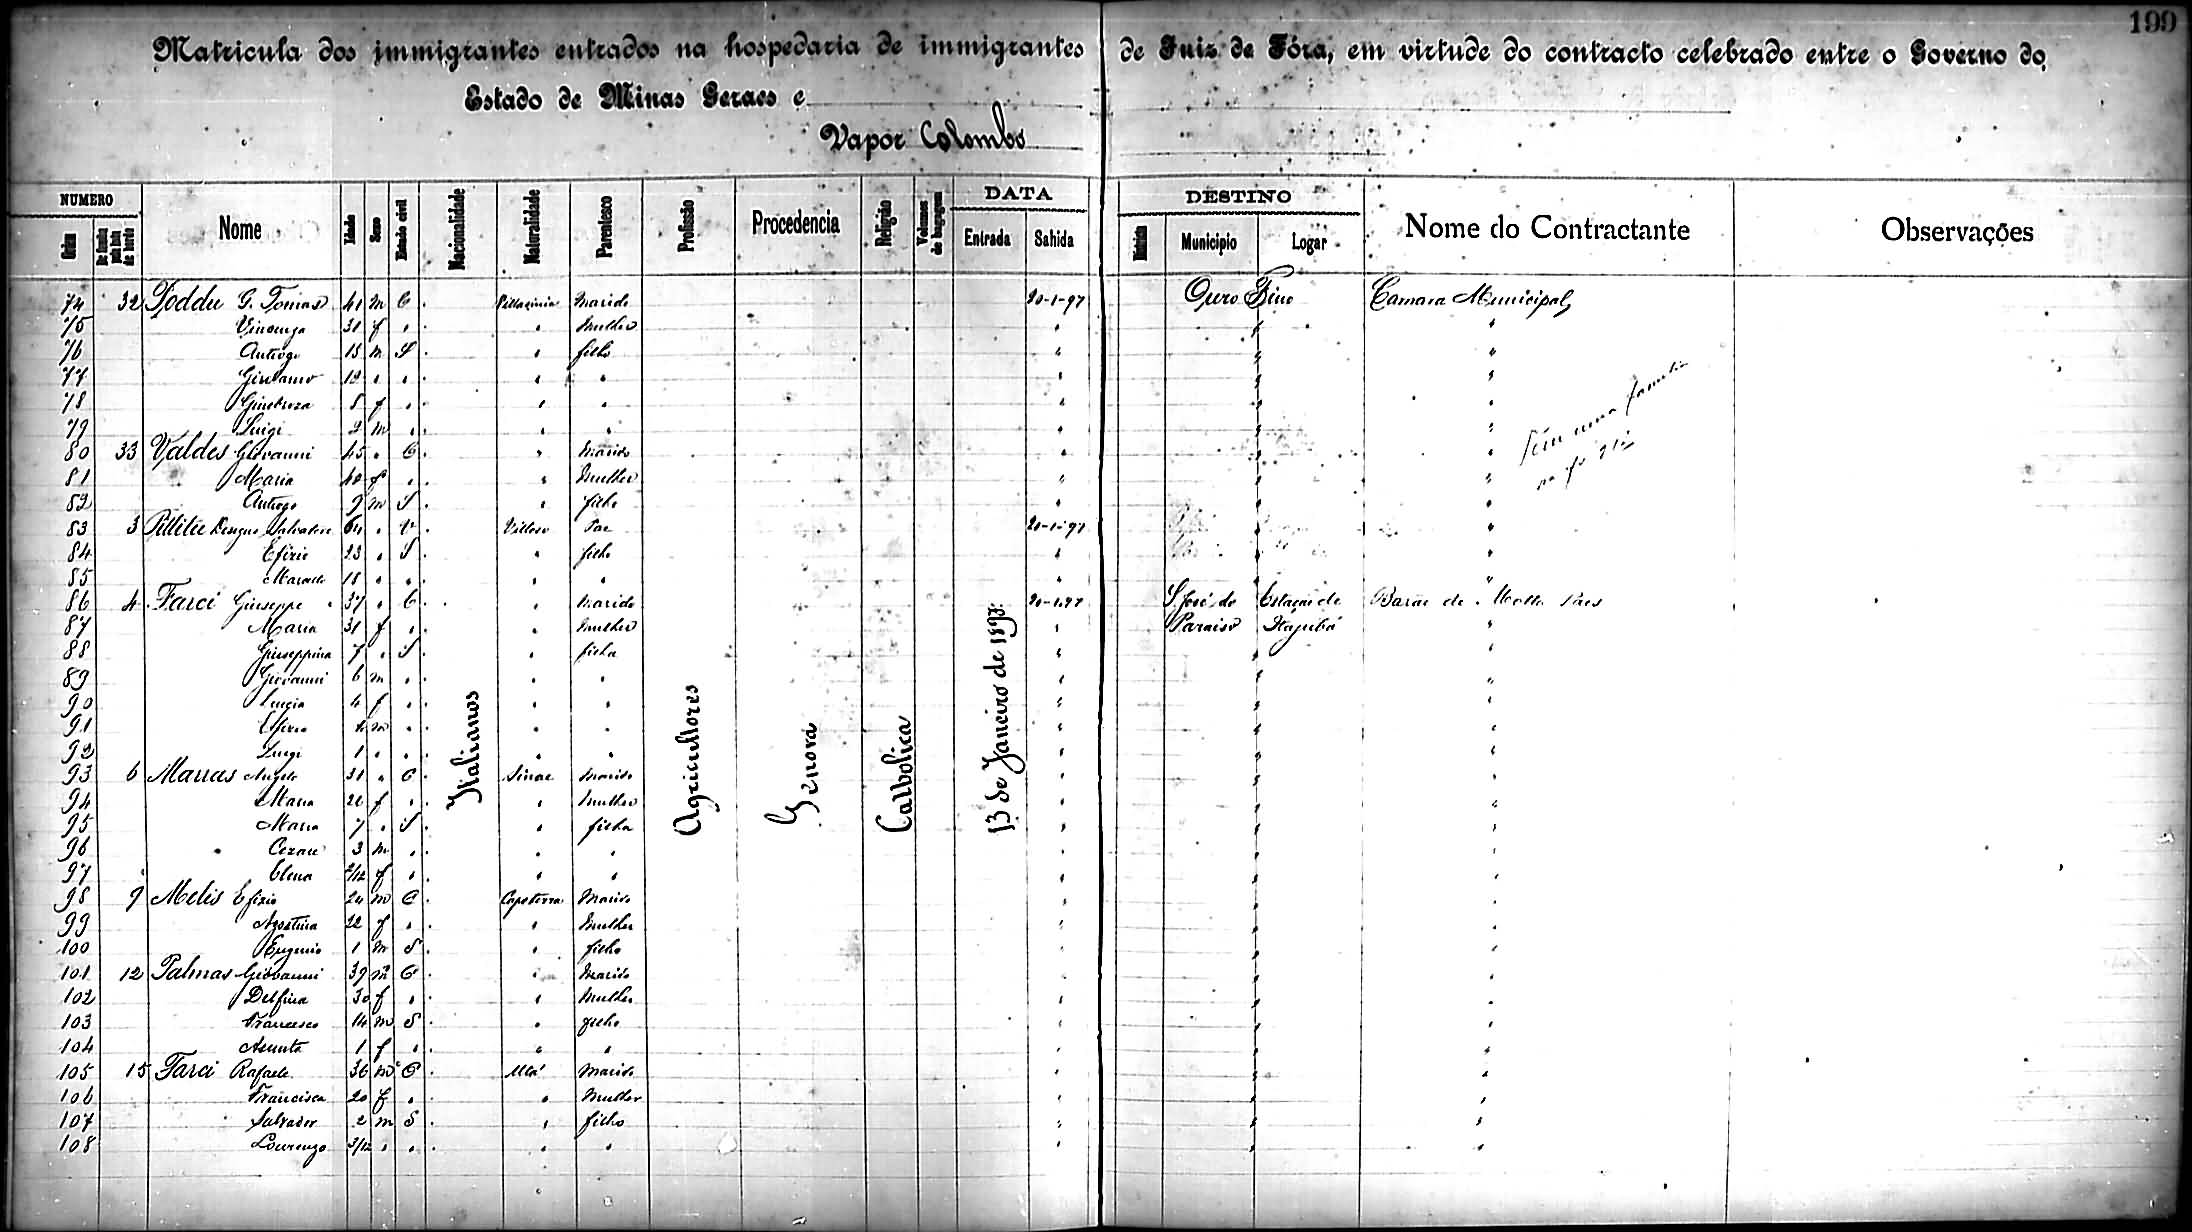 199
Matricula dos immigrantes entrados na hospedaria de immigrantes de Juiz de Fóra, em virtude do contracto celebrado entre o Governo do
Estado de Minas Geraes e
Vapor Colombo
NUMERO Nome Idade Sexo Estado civil Nacionalidade Naturalidade Parentesco Profissão Procedencia Religião Volumes de bagagem DATA Entrada Sahida DESTINO Municipio Logar Nome do Contractante Observações
Italianos
Agricultores
Genova
Catholica
13 de Janeiro de 1897
74 32 Poddu G. Tomas 41 m C. Marido 20-1-97 Ouro Fino Camara Municipal
75 Vincenza 31 f " " Mulher "
76 Antiogo 15 m S. " filho "
77 Giovanni 12 " " " " "
78 8 f " " " "
79 Luigi 2 m " " " "
80 33 Valdes Giovanni 45 " C. " Marido "
81 Maria 40 f " " Mulher "
82 Antiogo 9 m S. " filho "
83 3 Salvatore 64 " V. Pae 20-1-97
84 Efizio 23 " S. " filho "
85 18 " " " " "
86 4 Farci Giuseppe 37 " C. " Marido 20-1-97 S. José do Estação de Barão de Motta Paes
87 Maria 31 f " " Mulher " Paraiso Itajubá "
88 Giuseppina 7 " S. " filha "
89 Giovanni 6 m " " " "
90 Lucia 4 f " " " "
91 Efizio m " " " "
92 Luigi 1 " " " " "
93 6 Marras Angelo 31 " C. Sinae Marido "
94 Maria 26 f " " Mulher "
95 Maria 7 " S. " filha "
96 Cezare 3 m " " " "
97 Elena 2/12 f " " " "
98 9 Melis Efizio 24 m C. Capoterra Marido "
99 Agostina 22 f " " Mulher "
100 Eugenio 1 m S " filho "
101 12 Palmas Giovanni 39 m C. " Marido "
102 Delfina 30 f " " Mulher "
103 Francesco 14 m S. " filho "
104 Asunta 1 f " " " "
105 15 Farci Rafaele 36 m C. Utá Marido "
106 Francisca 20 f " " Mulher "
107 Salvador 2 m S. " filho "
108 Lourenzo 3/12 " " " " "